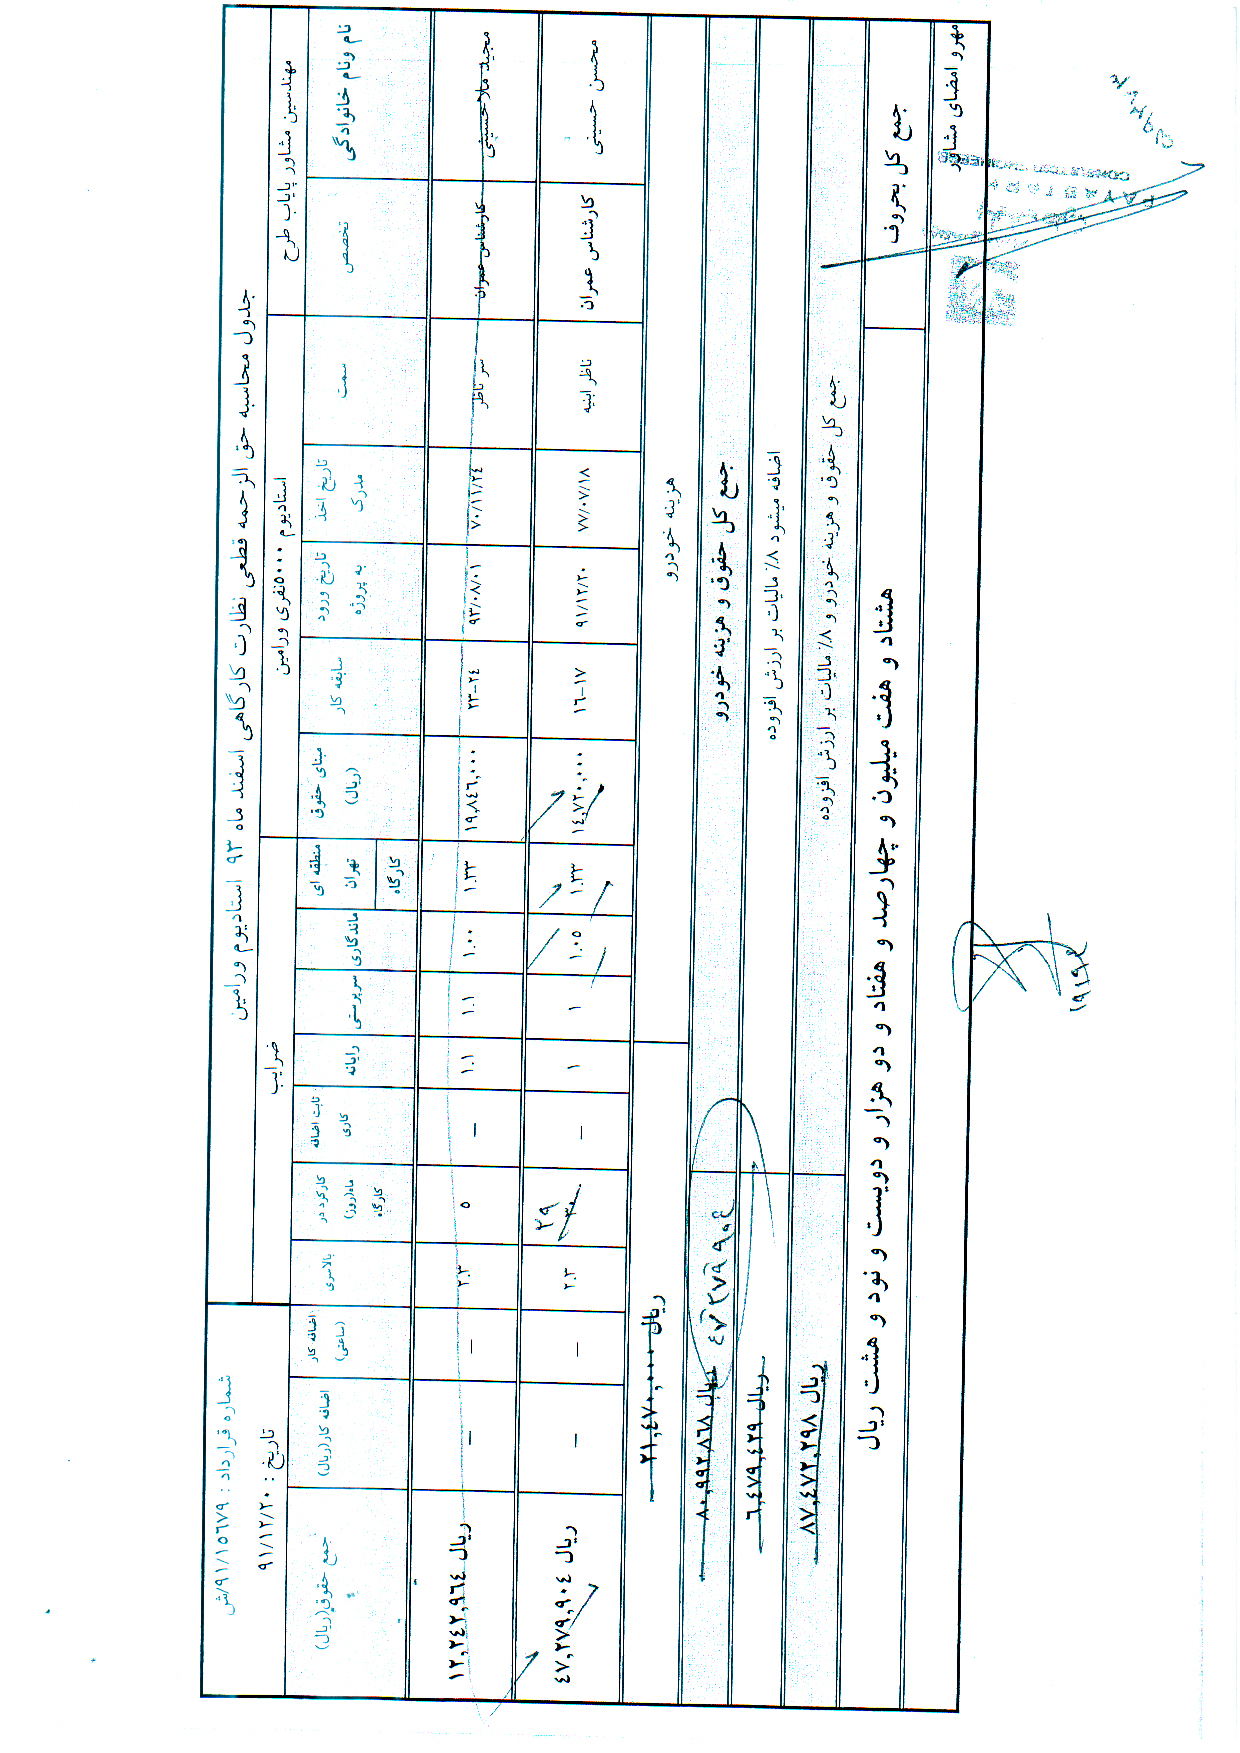 جدول محاسبه حق الزحمه قطعی نظارت کارگاهی اسفند ماه ۹۳ استادیوم ورامین
شماره قرارداد : ۹۱/۱۵۶۷۹/ش
تاریخ : ۹۱/۱۲/۲۰
مهندسین مشاور پایاب طرح
استادیوم ۵۰۰۰نفری ورامین
ضرایب
نام ونام خانوادگی
تخصص
سمت
تاریخ اخذ مدرک
تاریخ ورود به پروژه
سابقه کار
مبنای حقوق (ریال)
منطقه ای تهران کارگاه
ماندگاری
سرپرستی
رایانه
ثابت اضافه کاری
کارکرد در ماه(روز) کارگاه
بالاسری
اضافه کار (ساعتی)
اضافه کار(ریال)
جمع حقوق(ریال)
مجید ملاحسینی کارشناس عمران سر ناظر ۷۰/۱۱/۲٤ ۹۳/۰۸/۰۱ ۲۳-۲٤ ۱۹,۸٤٦,۰۰۰ ۱.۳۳ ۱.۰۰ ۱.۱ ۱.۱ – ٥ ۲.۳ – – ۱۲,۲٤۲,۹٦٤ ریال
محسن حسینی کارشناس عمران ناظر ابنیه ۷۷/۰۷/۱۸ ۹۱/۱۲/۲۰ ۱٦-۱۷ ۱٤,۷۲۰,۰۰۰ ۱.۳۳ ۱.۰٥ ۱ ۱ – ۳۰ ۲۹ ۲.۳ – – ٤۷,۲۷۹,۹۰٤ ریال
هزینه خودرو ۲۱,٤۷۰,۰۰۰ ریال
جمع کل حقوق و هزینه خودرو ۸۰,۹۹۲,۸٦۸ ریال ٤۷۲۷۹۹۰٤
اضافه میشود ۸٪ مالیات بر ارزش افزوده ٦,٤۷۹,٤۲۹ ریال
جمع کل حقوق و هزینه خودرو و ۸٪ مالیات بر ارزش افزوده ۸۷,٤۷۲,۲۹۸ ریال
جمع کل بحروف هشتاد و هفت میلیون و چهارصد و هفتاد و دو هزار و دویست و نود و هشت ریال
مهر و امضای مشاور
CONSULTING ENGINEERS
۱۹۱۹٤